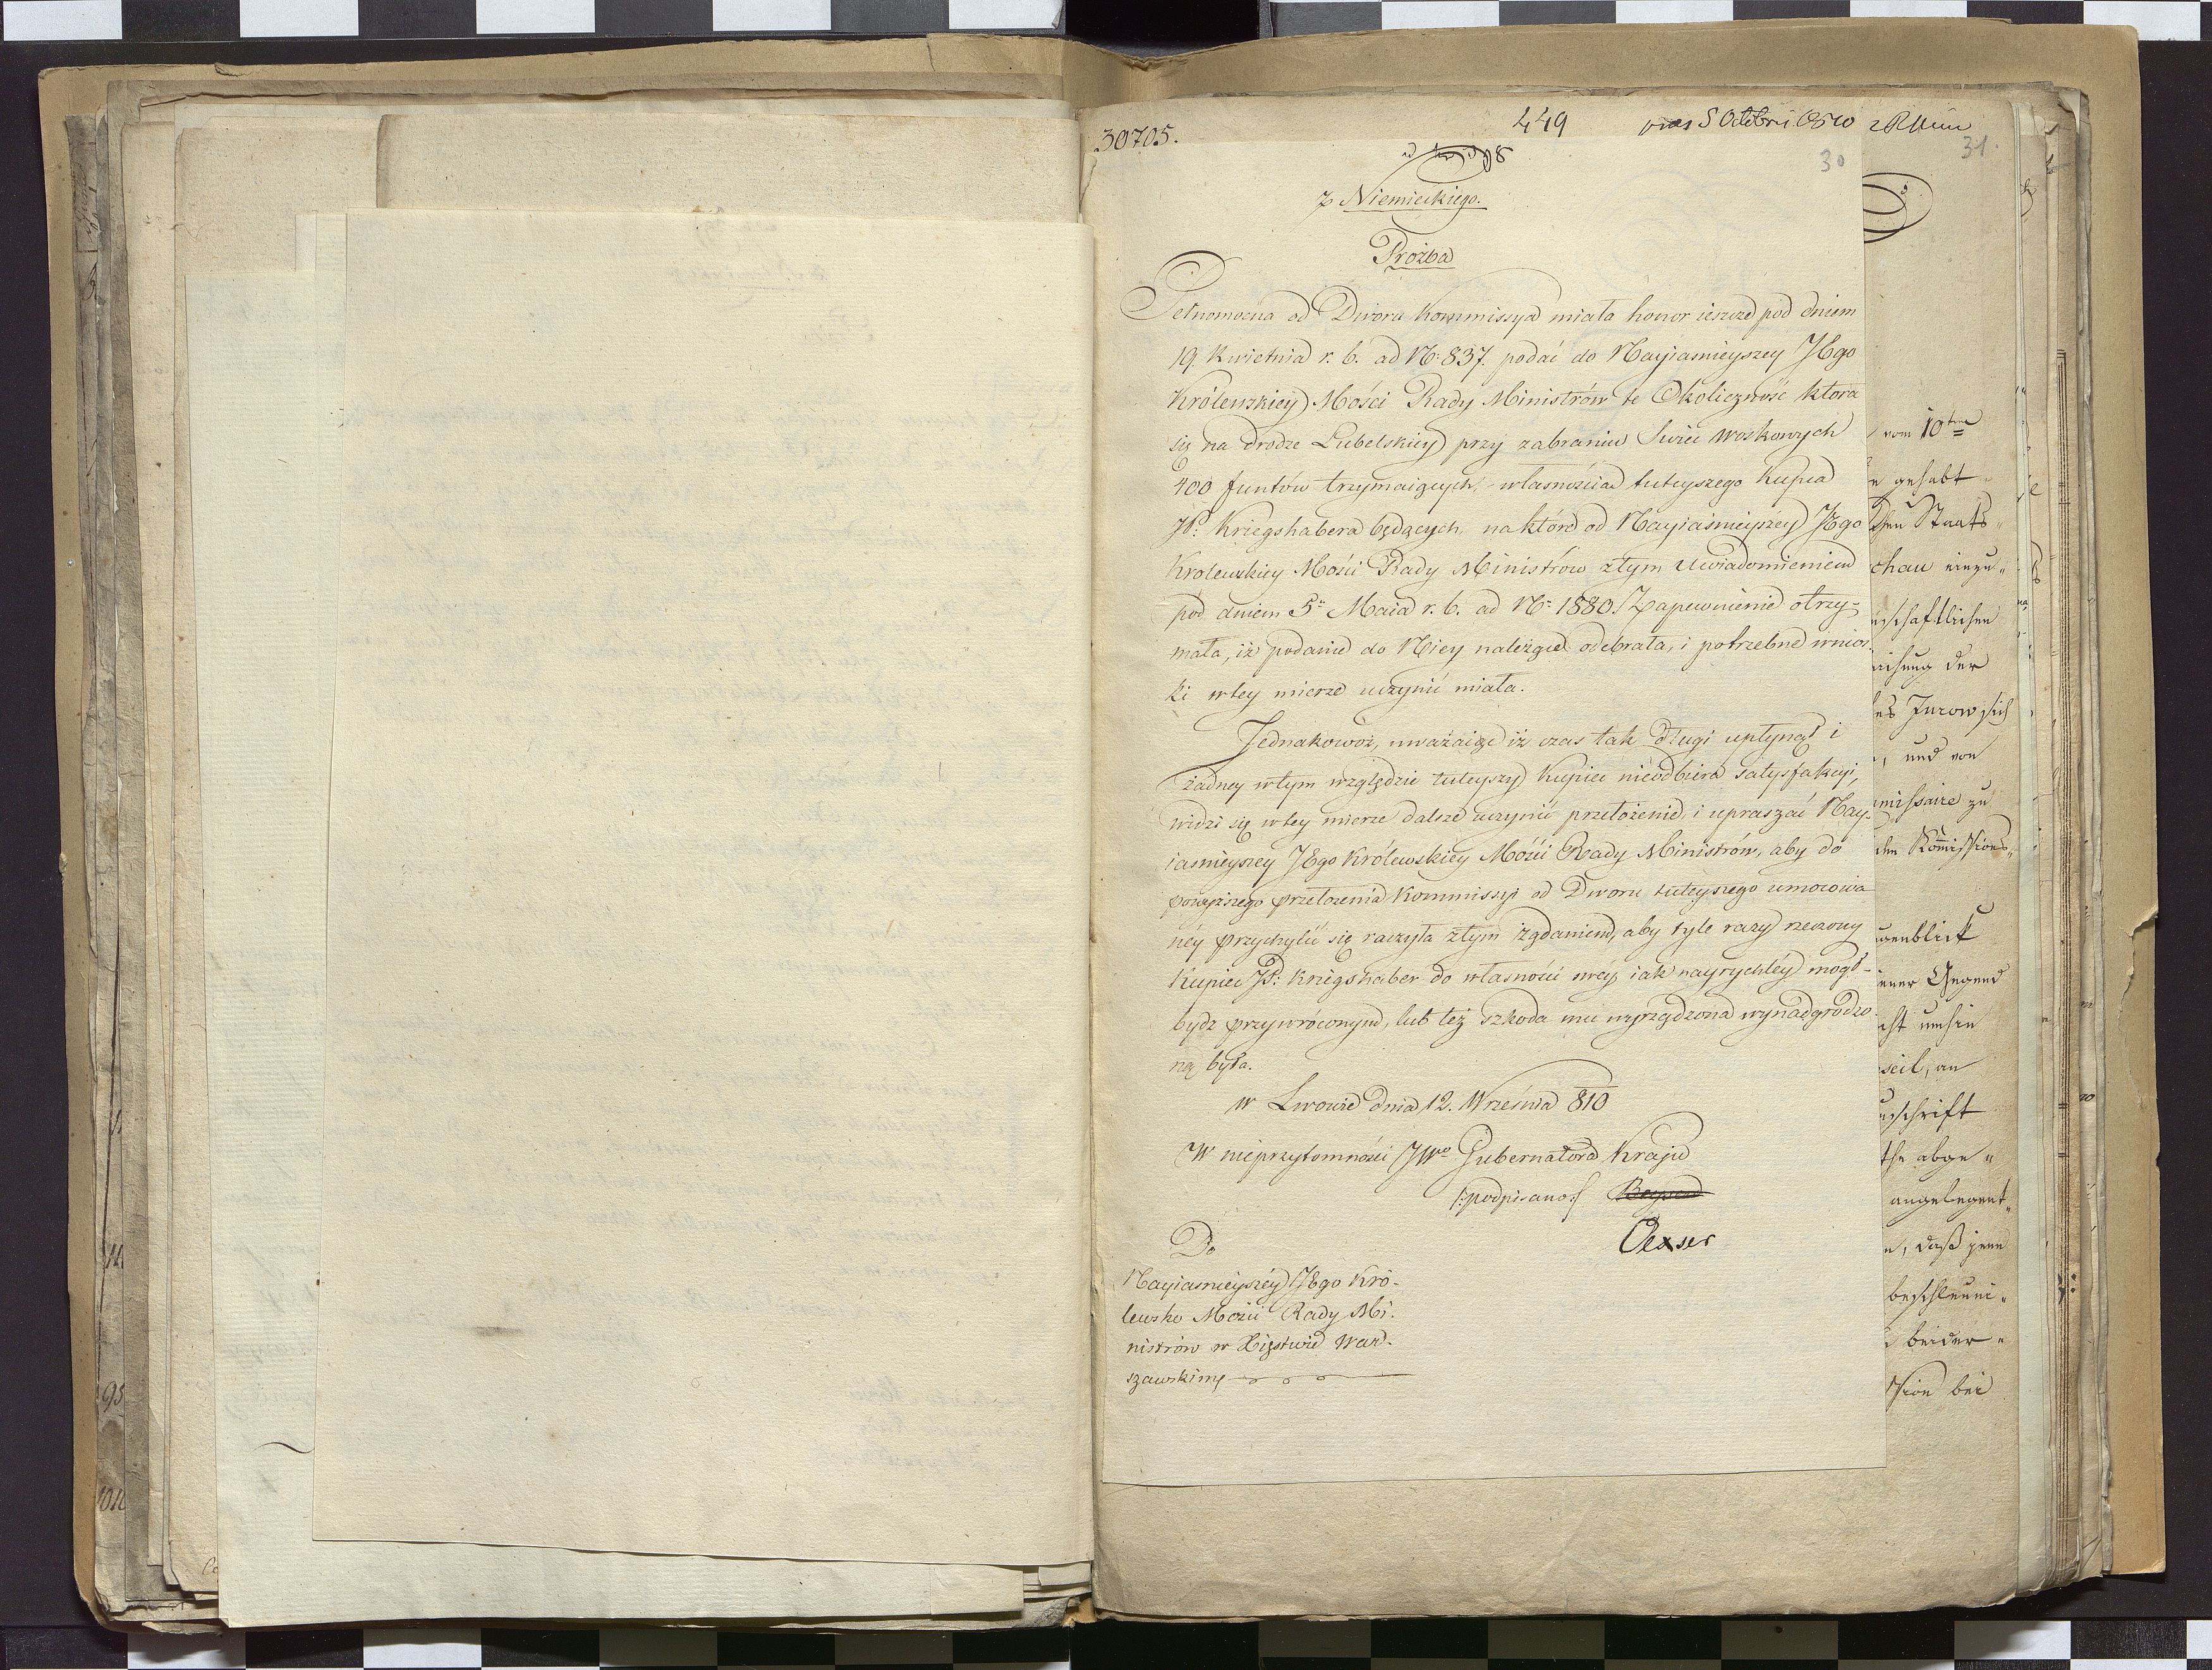 30705.
449
5 Octobri 1810
31.
30
z Niemieckiego.
Prozba
Pełnomocna od Dworu Kommissya miała honor ieszcze pod dniem
19. Kwietnia r. b. ad No: 837. podać do Nayiasnieyszey JEgo
Królewskiey Mości Rady Ministrów te Okoliczność ktora
się na drodze Lubelskiey przy zabraniu Swiec woskowych
400 funtów trzymaiących, własnościa tuteyszego Kupca
JP: Kriegshabera będących, na które od Nayiaśnieyszéy JEgo
Krolewskiey Mości Rady Ministrów ztym Uwiadomieniem
pod dniem 5o Maia r. b. ad No 1880. Zapewnienie otrzy-
mała, iż podanie do Niey należące odebrała, i potrzebne wnios-
ki wtey mierze uczynić miała.
Jednakowoż, uważaiąc iż czas tak długi upłynął i
żadney wtym względzie tuteyszy Kupiec nieodbiera satysfakcyi,
widzi się wtey mierze dalsze uczynić przełożenie, i upraszać Nay-
iasnieyszey JEgo Królewskiey Mości Rady Ministrów, aby do
powyższego przełożenia Kommissyi od Dworu tuteyszego umocowa
néy przychylić się raczyła ztym żądaniem, aby tyle razy rzeczony
Kupiec JP: Kriegshaber do własności swéy iak nayrychléy mogł-
bydz przywróconym, lub też szkoda mu wyrządzona wynadgrodzo
ną była.
w Lwowie dnia 12. Września 810
W nieprzytomności JWo Gubernatora Kraju
/:podpisano:/
Oexser
Do
Nayiasnieyszéy JEgo Kró-
lewsko Mości Rady Mi-
nistrów w Xięstwie War-
szawskimę
vom 10ten
gehabt
Staats
chau einzu-
schaftlichen
der
Jurow sich
, und von
missaire zu
den Kommissions-
genblick
Gegend
umhin
seil, an
schrift
abge-
angelegent-
, daß jene
beschleuni-
beider-
sion bei